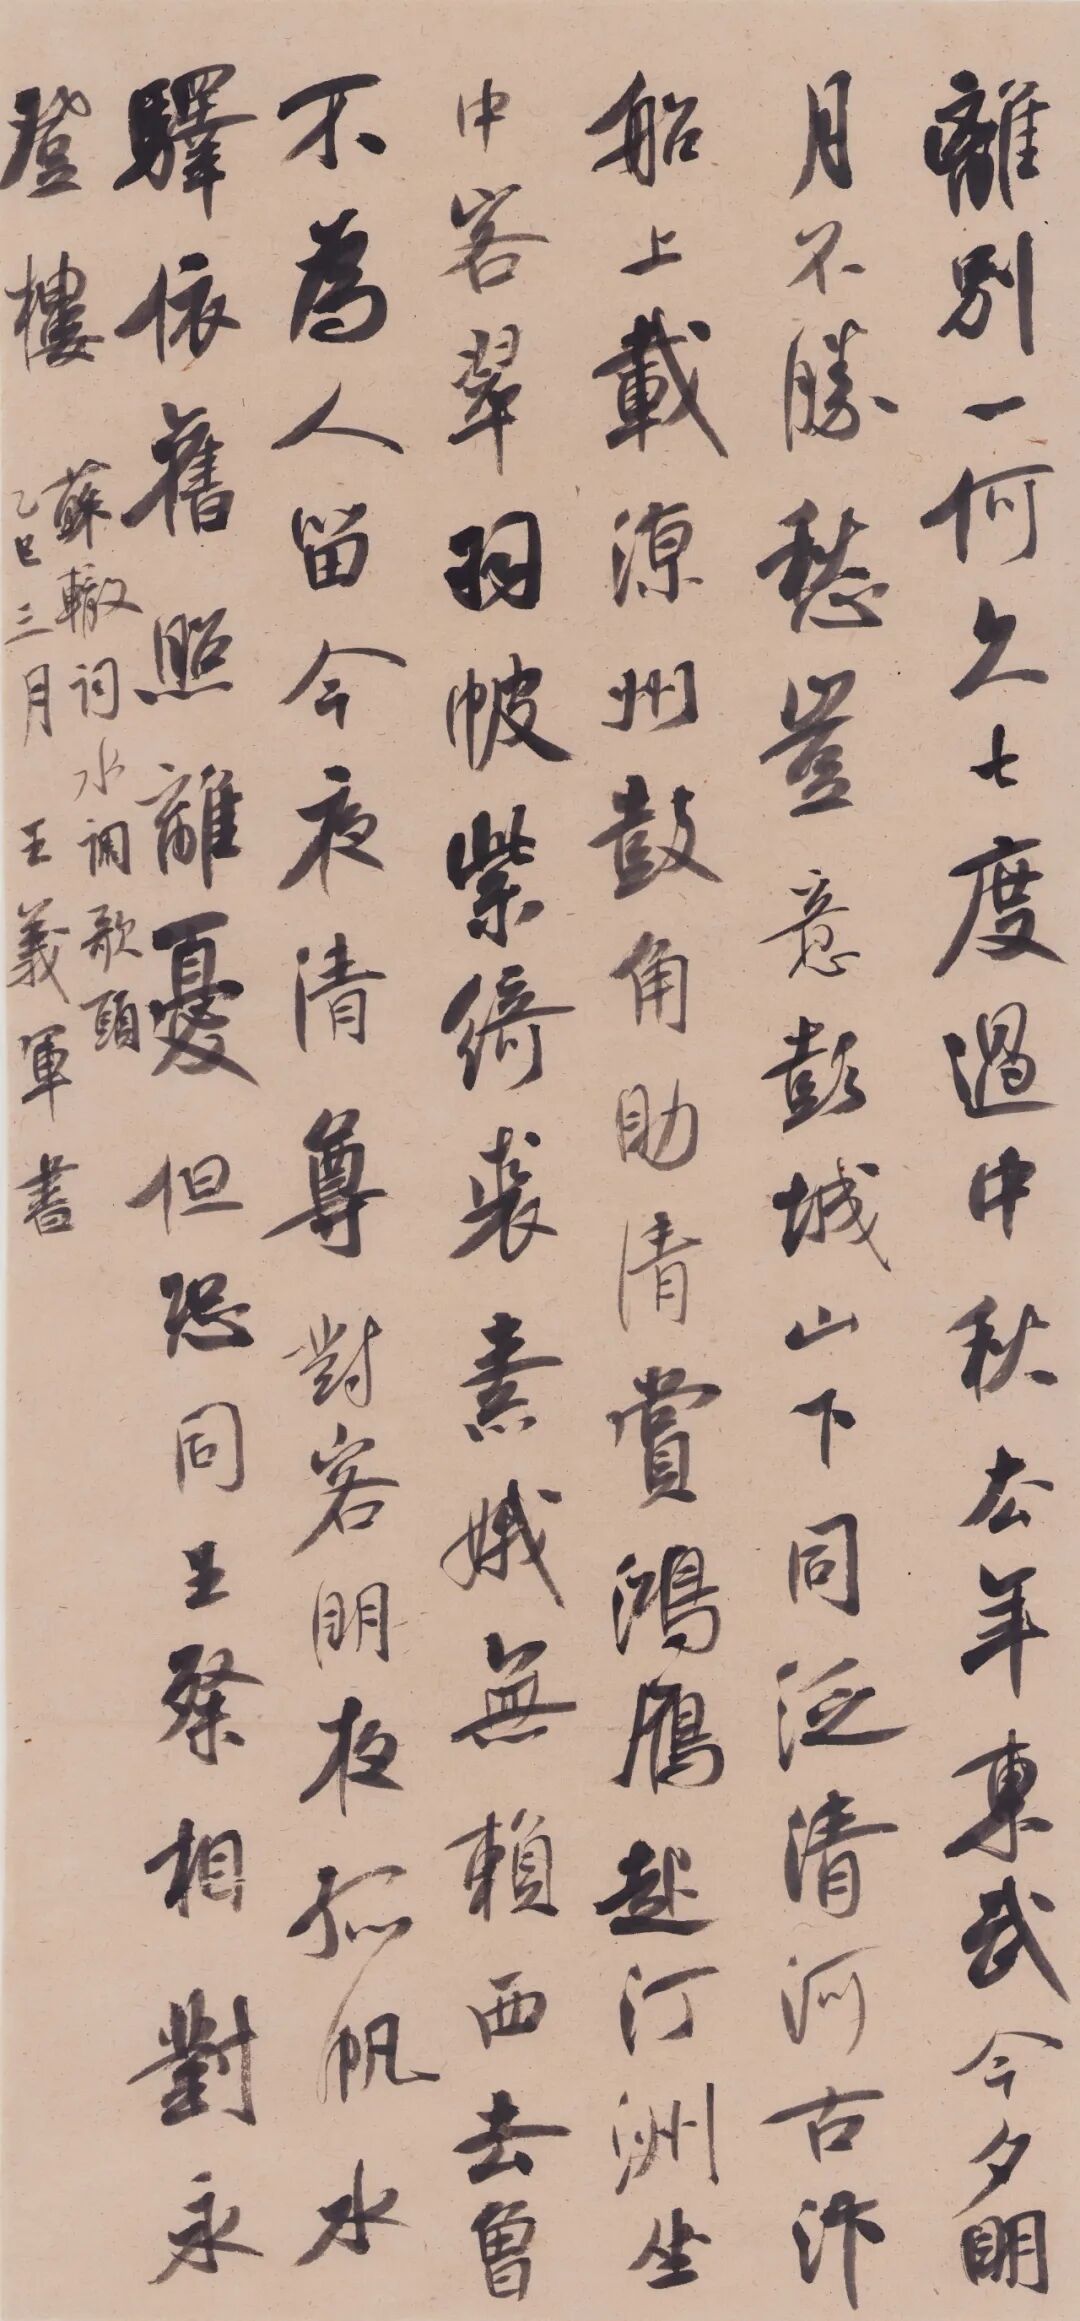 離別一何久七度過中秋去年東武今夕明
月不勝愁豈意彭城山下同泛清河古汴
船上載涼州鼓角助清賞鴻鴈起汀洲坐
中客翠羽帔紫綺裘素娥無賴西去曾
不為人留今夜清尊對客明夜孤帆水
驛依舊照離憂但恐同王粲相對永
登樓
蘇轍词水调歌頭
乙巳三月王義軍書